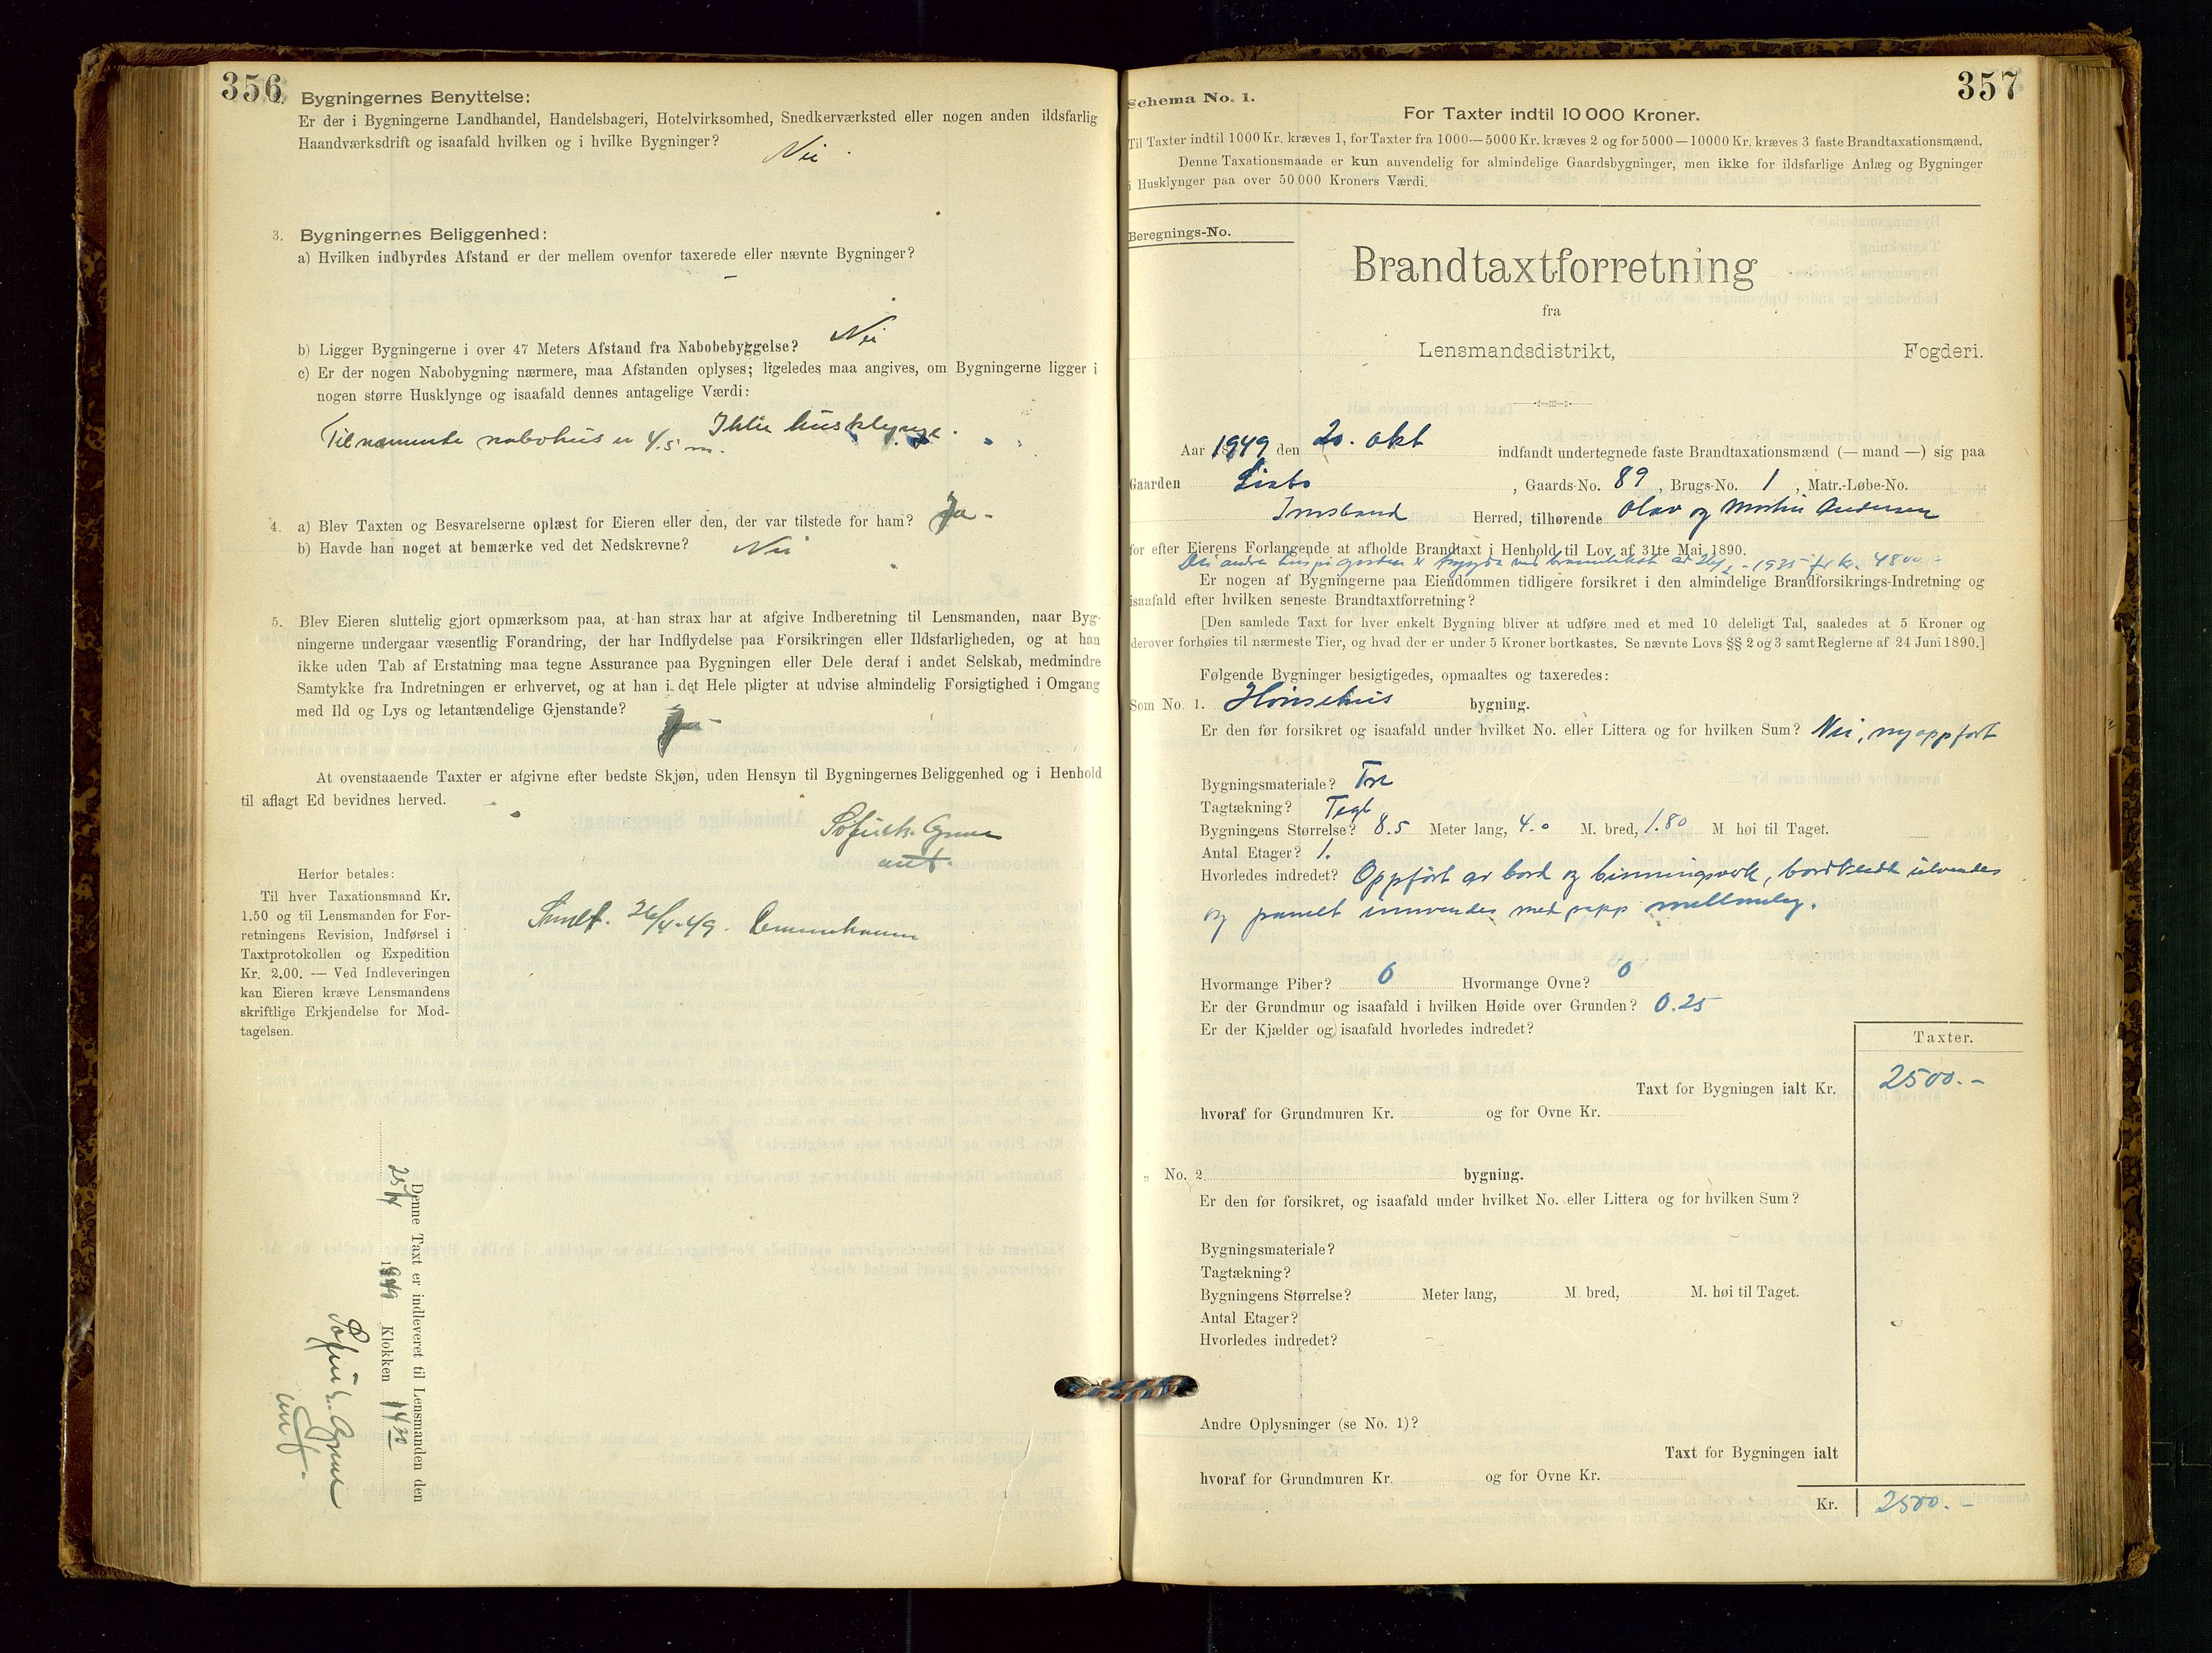 356
2. Bygningernes Benyttelse:
Er der i Bygningerne Landhandel, Handelsbageri, Hotelvirksomhed, Snedkerværksted eller nogen anden ildsfarlig
Haandværksdrift og isaafald hvilken og i hvilke Bygninger?
Nei
3. Bygningernes Beliggenhed:
a) Hvilken indbyrdes Afstand er der mellem ovenfor taxerede eller nævnte Bygninger?
–
b) Ligger Bygningerne i over 47 Meters Afstand fra Nabobebyggelse? Nei
c) Er der nogen Nabobygning nærmere, maa Afstanden oplyses; ligeledes maa angives, om Bygningerne ligger i
nogen større Husklynge og isaafald dennes antagelige Værdi:
Til nærmeste nabohus er 4.5 m. Ikke husklynge.
4. a) Blev Taxten og Besvarelserne oplæst for Eieren eller den, der var tilstede for ham? Ja –
b) Havde han noget at bemærke ved det Nedskrevne? Nei
5. Blev Eieren sluttelig gjort opmærksom paa, at han strax har at afgive Indberetning til Lensmanden, naar Byg-
ningerne undergaar væsentlig Forandring, der har Indflydelse paa Forsikringen eller Ildsfarligheden, og at han
ikke uden Tab af Erstatning maa tegne Assurance paa Bygningen eller Dele deraf i andet Selskab, medmindre
Samtykke fra Indretningen er erhvervet, og at han i det Hele pligter at udvise almindelig Forsigtighed i Omgang
med Ild og Lys og letantændelige Gjenstande?
Ja –
At ovenstaaende Taxter er afgivne efter bedste Skjøn, uden Hensyn til Bygningernes Beliggenhed og i Henhold
til aflagt Ed bevidnes herved.
Herfor betales:
Til hver Taxationsmand Kr.
1.50 og til Lensmanden for For-
retningens Revision, Indførsel i
Taxtprotokollen og Expedition
Kr. 2.00. — Ved Indleveringen
kan Eieren kræve Lensmandens
skriftlige Erkjendelse for Mod-
tagelsen.
26/4-49.
Denne Taxt er indleveret til Lensmanden den
25/4 1949 Klokken 14 30
357
Schema No. 1.
For Taxter indtil 10 000 Kroner.
Til Taxter indtil 1000 Kr. kræves 1, for Taxter fra 1000—5000 Kr. kræves 2 og for 5000—10000 Kr. kræves 3 faste Brandtaxationsmænd.
Denne Taxationsmaade er kun anvendelig for almindelige Gaardsbygninger, men ikke for ildsfarlige Anlæg og Bygninger
i Husklynger paa over 50 000 Kroners Værdi.
Beregnings-No.
Brandtaxtforretning
fra
Lensmandsdistrikt, Fogderi.
Aar 1949 den 20. okt indfandt undertegnede faste Brandtaxationsmænd (— mand —) sig paa
Gaarden , Gaards-No. 89 , Brugs-No. 1 , Matr.-Løbe-No.
Imsland Herred, tilhørende Olav og Martin Andersen
for efter Eierens Forlangende at afholde Brandtaxt i Henhold til Lov af 31te Mai 1890.
Dei andre hus på garden er 1935 for kr. 4800 –
Er nogen af Bygningerne paa Eiendommen tidligere forsikret i den almindelige Brandforsikrings-Indretning og
isaafald efter hvilken seneste Brandtaxtforretning?
[Den samlede Taxt for hver enkelt Bygning bliver at udføre med et med 10 deleligt Tal, saaledes at 5 Kroner og
derover forhøies til nærmeste Tier, og hvad der er under 5 Kroner bortkastes. Se nævnte Lovs §§ 2 og 3 samt Reglerne af 24 Juni 1890.]
Følgende Bygninger besigtigedes, opmaaltes og taxeredes:
Som No. 1. Hönsehus bygning.
Er den før forsikret og isaafald under hvilket No. eller Littera og for hvilken Sum? Nei, nyoppført
Bygningsmateriale? Tre
Tagtækning? Tegl
Bygningens Størrelse? 8.5 Meter lang, 4.0 M. bred, 1.80 M. høi til Taget.
Antal Etager? 1.
Hvorledes indredet? Oppført av bord og binningsverk, bordkledt utvendes
og panelt innvendes med papp mellomlag.
Hvormange Piber? 0 Hvormange Ovne? 0
Er der Grundmur og isaafald i hvilken Høide over Grunden? 0.25
Er der Kjælder og isaafald hvorledes indredet?
Taxter.
Taxt for Bygningen ialt Kr. 2500.–
hvoraf for Grundmuren Kr. og for Ovne Kr.
„ No. 2. bygning.
Er den før forsikret, og isaafald under hvilket No. eller Littera og for hvilken Sum?
Bygningsmateriale?
Tagtækning?
Bygningens Størrelse? Meter lang, M. bred, M. høi til Taget.
Antal Etager?
Hvorledes indredet?
Andre Oplysninger (se No. 1)?
Taxt for Bygningen ialt
hvoraf for Grundmuren Kr. og for Ovne Kr.
Kr. 2500.–